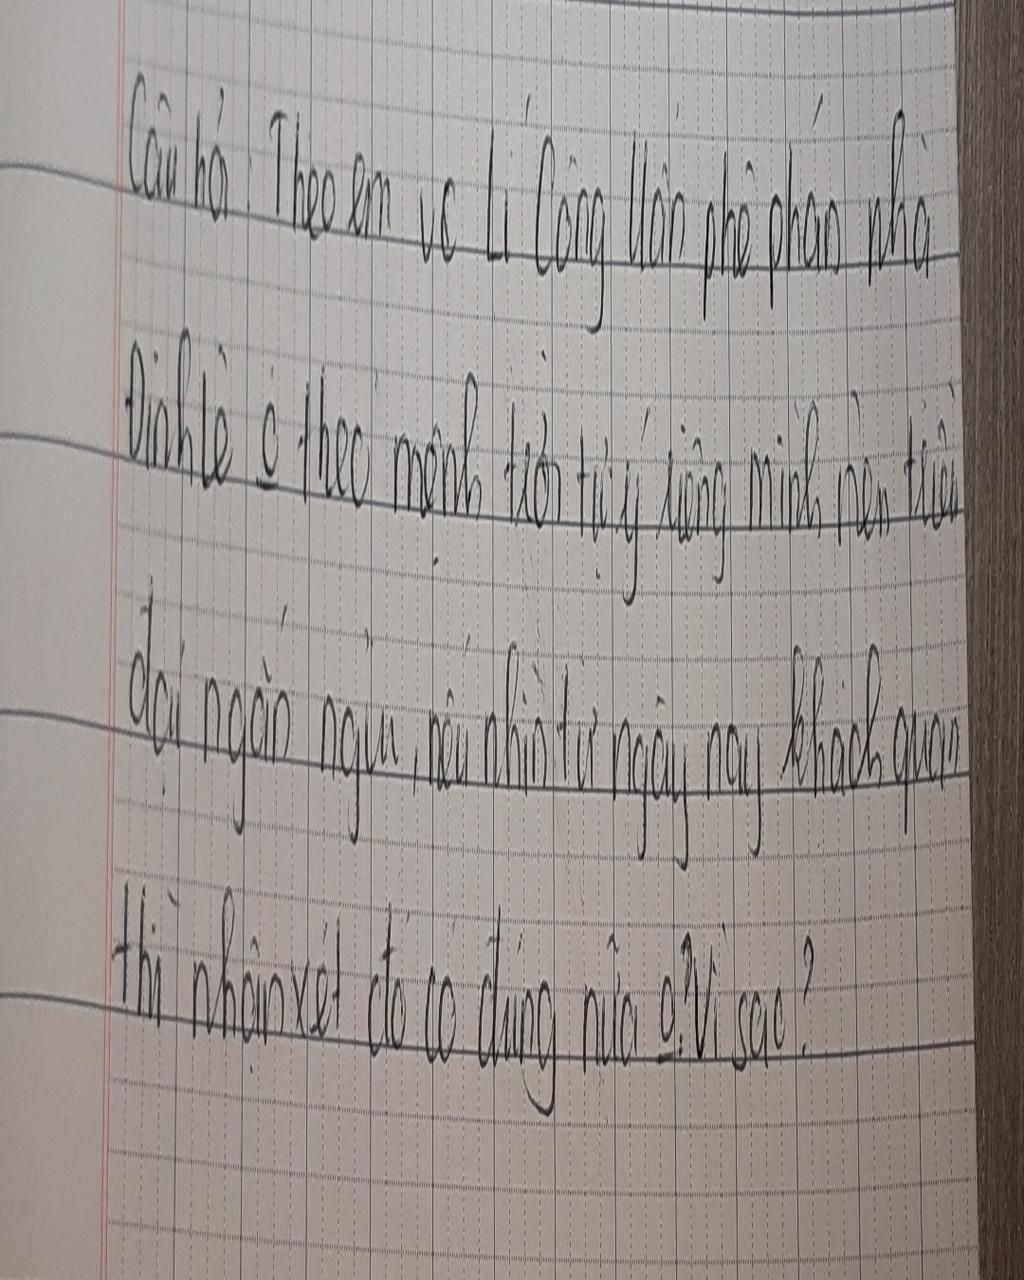 Câu hỏi: Theo em vc Lí Công Uẩn phê phán nhà
Đinh lê o theo mệnh trời tự ý riêng mình nên triều
đại ngắn ngủi, nếu nhìn từ ngày nay khách quan
thì nhận xét đó có đúng nữa o? Vì sao?